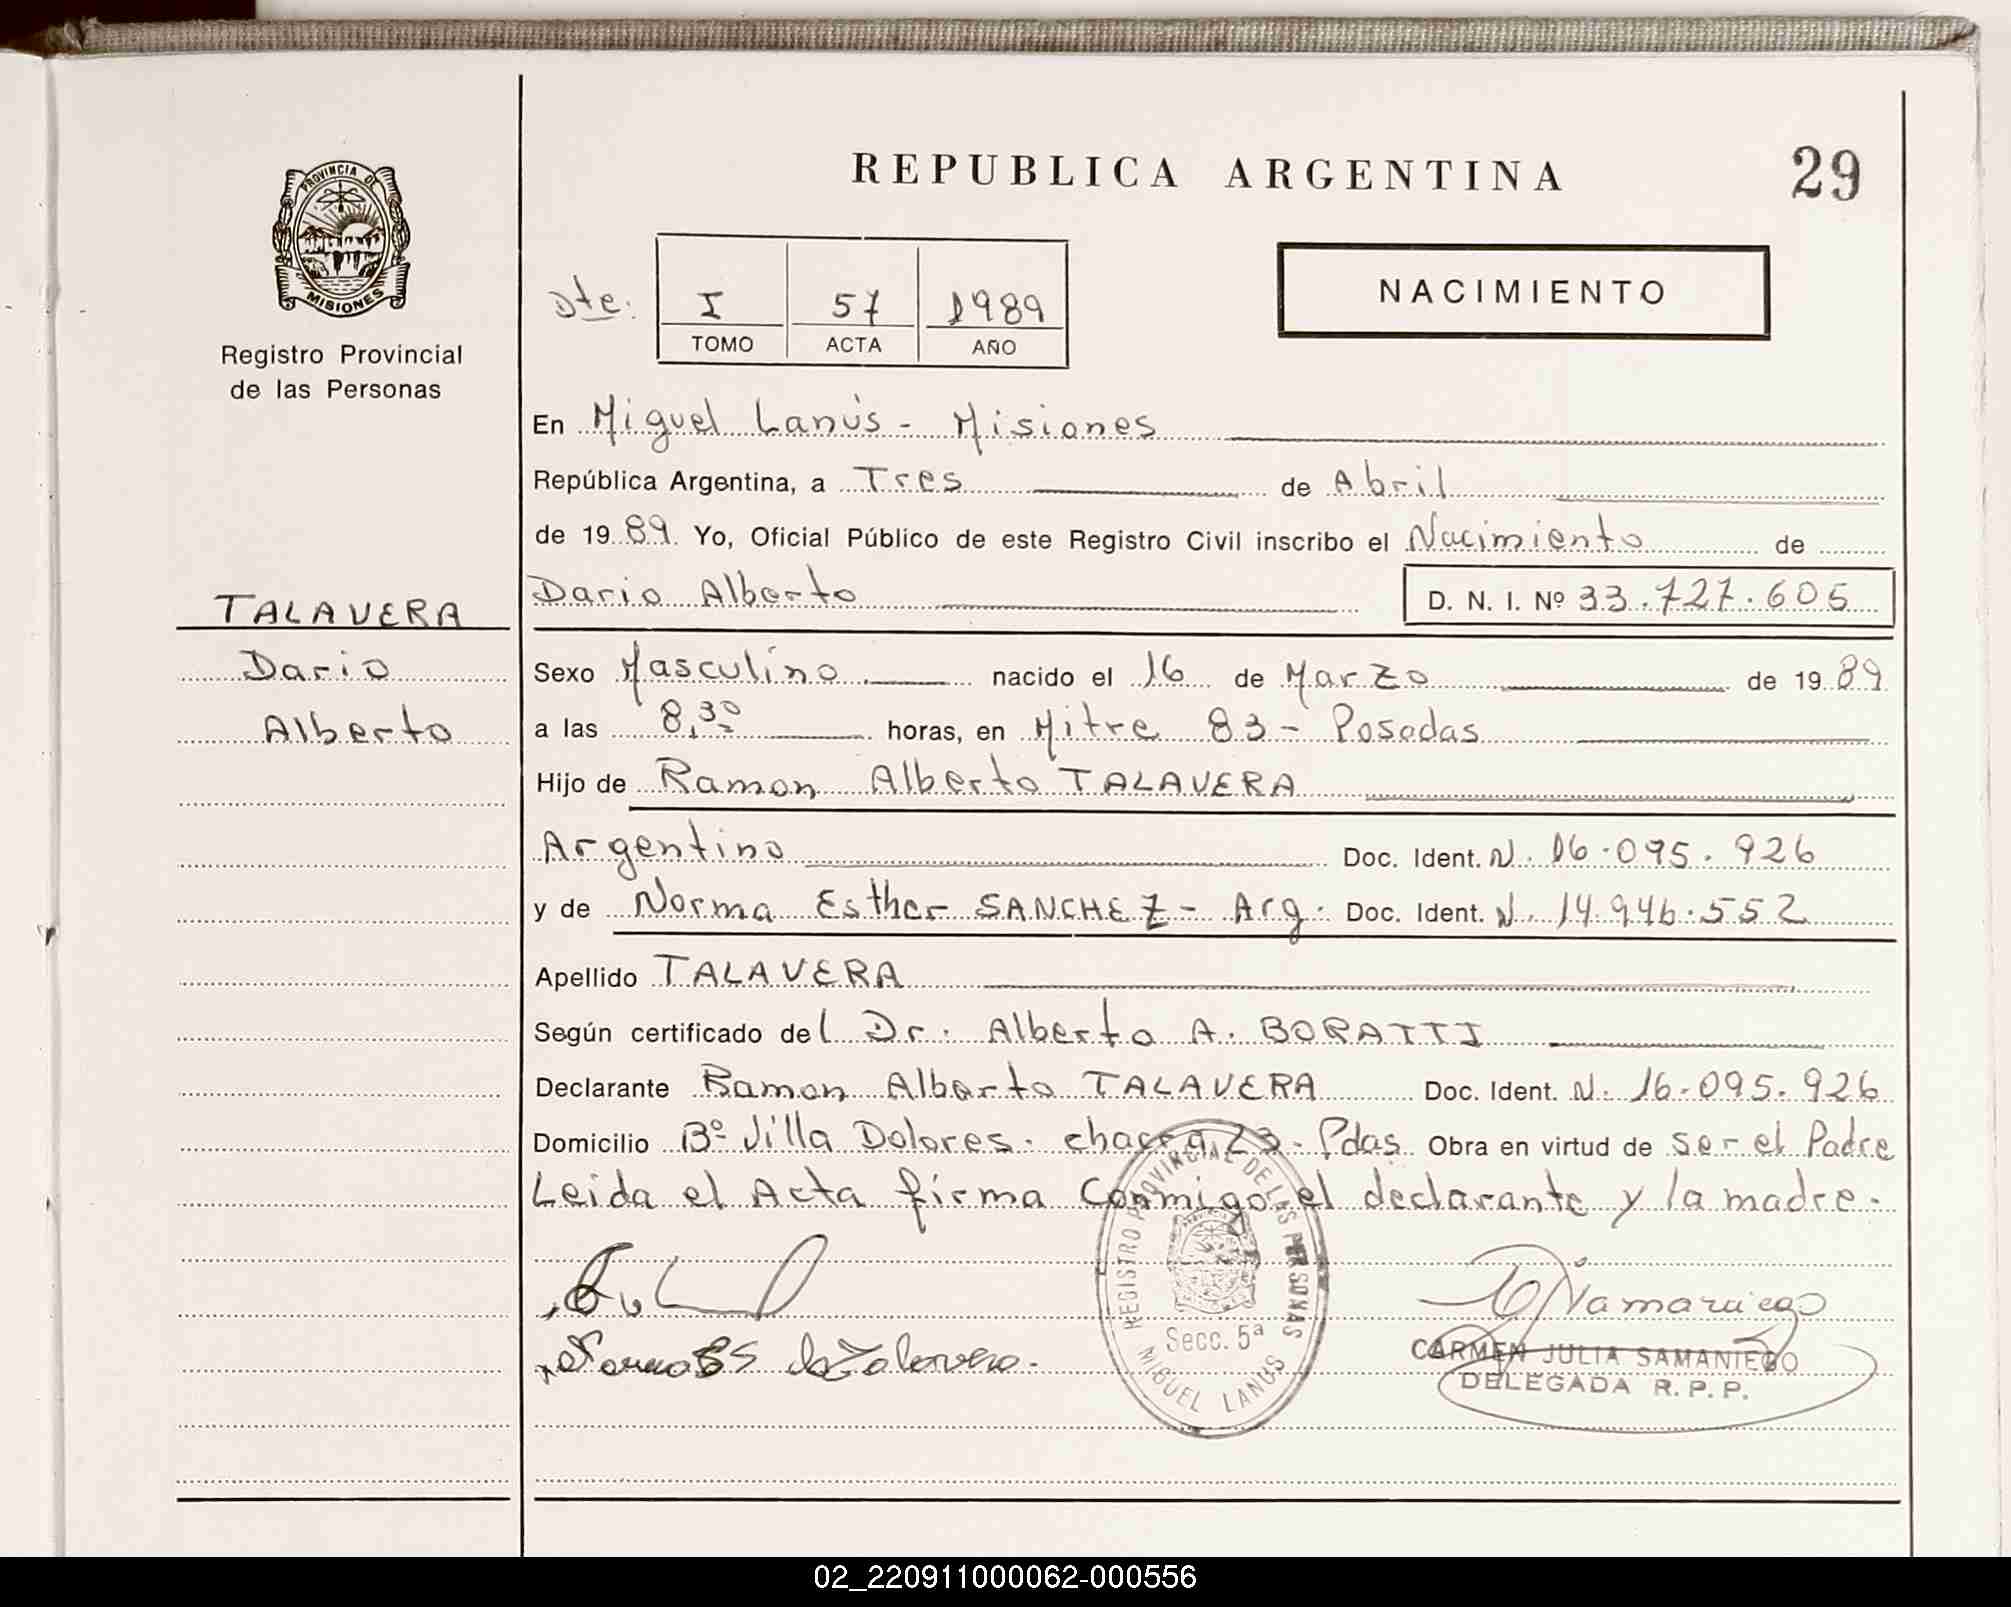 REPUBLICA ARGENTINA
29
PROVINCIA DE
MISIONES
Registro Provincial
de las Personas
Dte.
I 57 1989
TOMO ACTA AÑO
NACIMIENTO
TALAVERA
Dario
Alberto
En Miguel Lanús - Misiones
República Argentina, a Tres de Abril
de 1989 Yo, Oficial Público de este Registro Civil inscribo el Nacimiento de
Dario Alberto D. N. I. Nº 33.727.605
Sexo Masculino nacido el 16 de Marzo de 1989
a las 8,30 horas, en Mitre 83 - Posadas
Hijo de Ramon Alberto TALAVERA
Argentino Doc. Ident. N. 16.095.926
y de Norma Esther SANCHEZ - Arg. Doc. Ident. N. 14.946.552
Apellido TALAVERA
Según certificado del Dr. Alberto A. BORATTI
Declarante Ramon Alberto TALAVERA Doc. Ident. N. 16.095.926
Domicilio Bº Villa Dolores. chacra 23 - Pdas Obra en virtud de ser el Padre
Leida el Acta firma conmigo el declarante y la madre.
REGISTRO PROVINCIAL DE LAS PERSONAS
Secc. 5ª
MIGUEL LANUS
CARMEN JULIA SAMANIEGO
DELEGADA R. P. P.
02_220911000062-000556